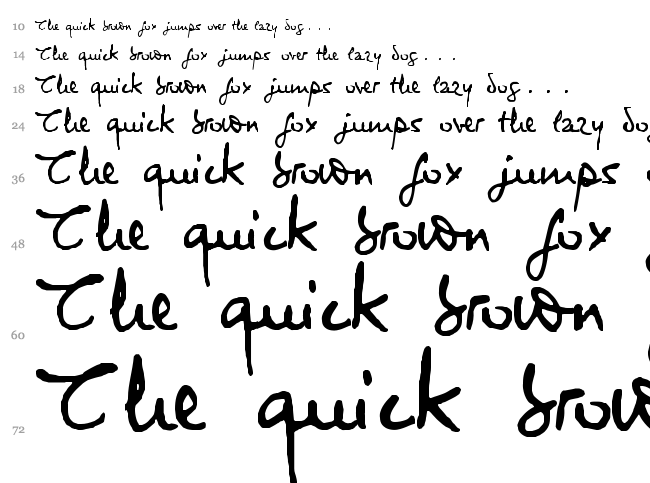 10 The quick brown fox jumps over the lazy dog . . .
14 The quick brown fox jumps over the lazy dog . . .
18 The quick brown fox jumps over the lazy dog . . .
24 The quick brown fox jumps over the lazy do
36 The quick brown fox jumps
48 The quick brown fox
60 The quick brown
72 The quick brow